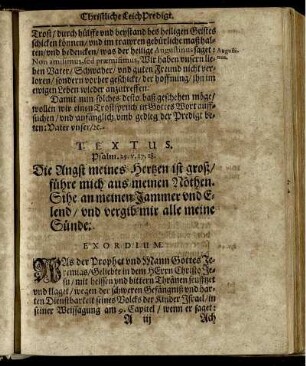 Christliche LeichPredigt.
Trost / durch hülff vnd beystand des heiligen Geistes
schicken können / vnd im trawren gebürliche maß hal-
ten / vnd bedencken / was der heilige Augustinus saget:
Augusti-
nus.
Non amisimus, sed præmisimus. Wir haben vnsern lie-
ben Vater / Schwaher / vnd guten Freund nicht ver-
loren / sondern vorher geschickt / der hoffnung / jhn im
ewigen Leben wieder anzutreffen.
Damit nun solches desto baß geschehen möge /
wollen wir einen Trostspruch in Gottes Wort auff-
suchen / vnd anfänglich vmb gedieg der Predigt be-
ten: Vater vnser / ꝛc.
TEXTUS.
Psalm. 25. v. 17. 18.
Die Angst meines Hertzen ist groß /
führe mich aus meinen Nöthen.
Sihe an meinen Jammer vnd E-
lend / vnd vergib mir alle meine
Sünde.
EXORDIUM.
WAs der Prophet vnd Mann Gottes Je-
remias / Geliebte in dem HErrn Christo Je-
su / mit heissen vnd bittern Thränen seufftzet
vnd klaget / wegen der schweren Gefängniß vnd har-
ten Dienstbarkeit seines Volcks der Kinder Israel / in
seiner Weissagung am 9. Capitel / wenn er saget:
A iij
Ach